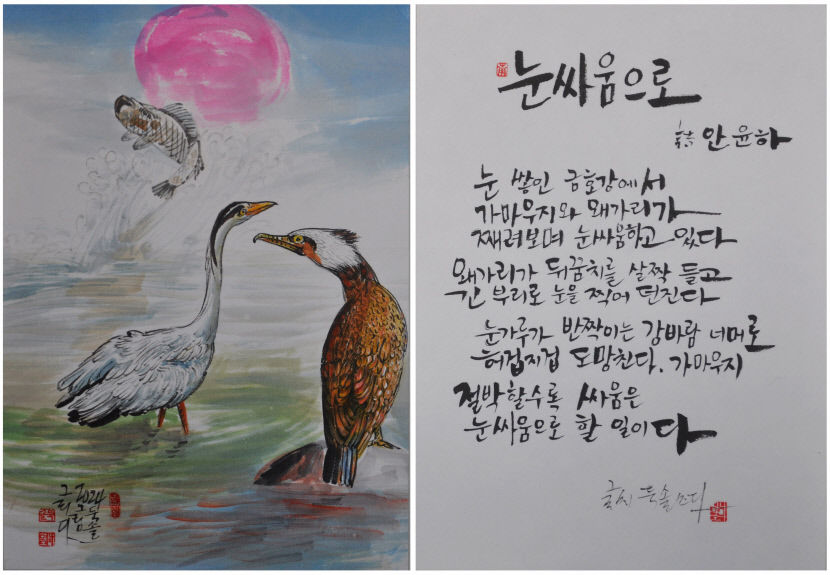 눈싸움으로
詩 안윤하
눈 쌓인 금호강에서
가마우지와 왜가리가
째려보며 눈싸움하고 있다
왜가리가 뒤꿈치를 살짝 들고
긴 부리로 눈을 찍어 던진다
눈가루가 반짝이는 강바람 너머로
허겁지겁 도망친다. 가마우지
절박할수록 싸움은
눈싸움으로 할 일이다
글씨 툰솔
2024
그리다